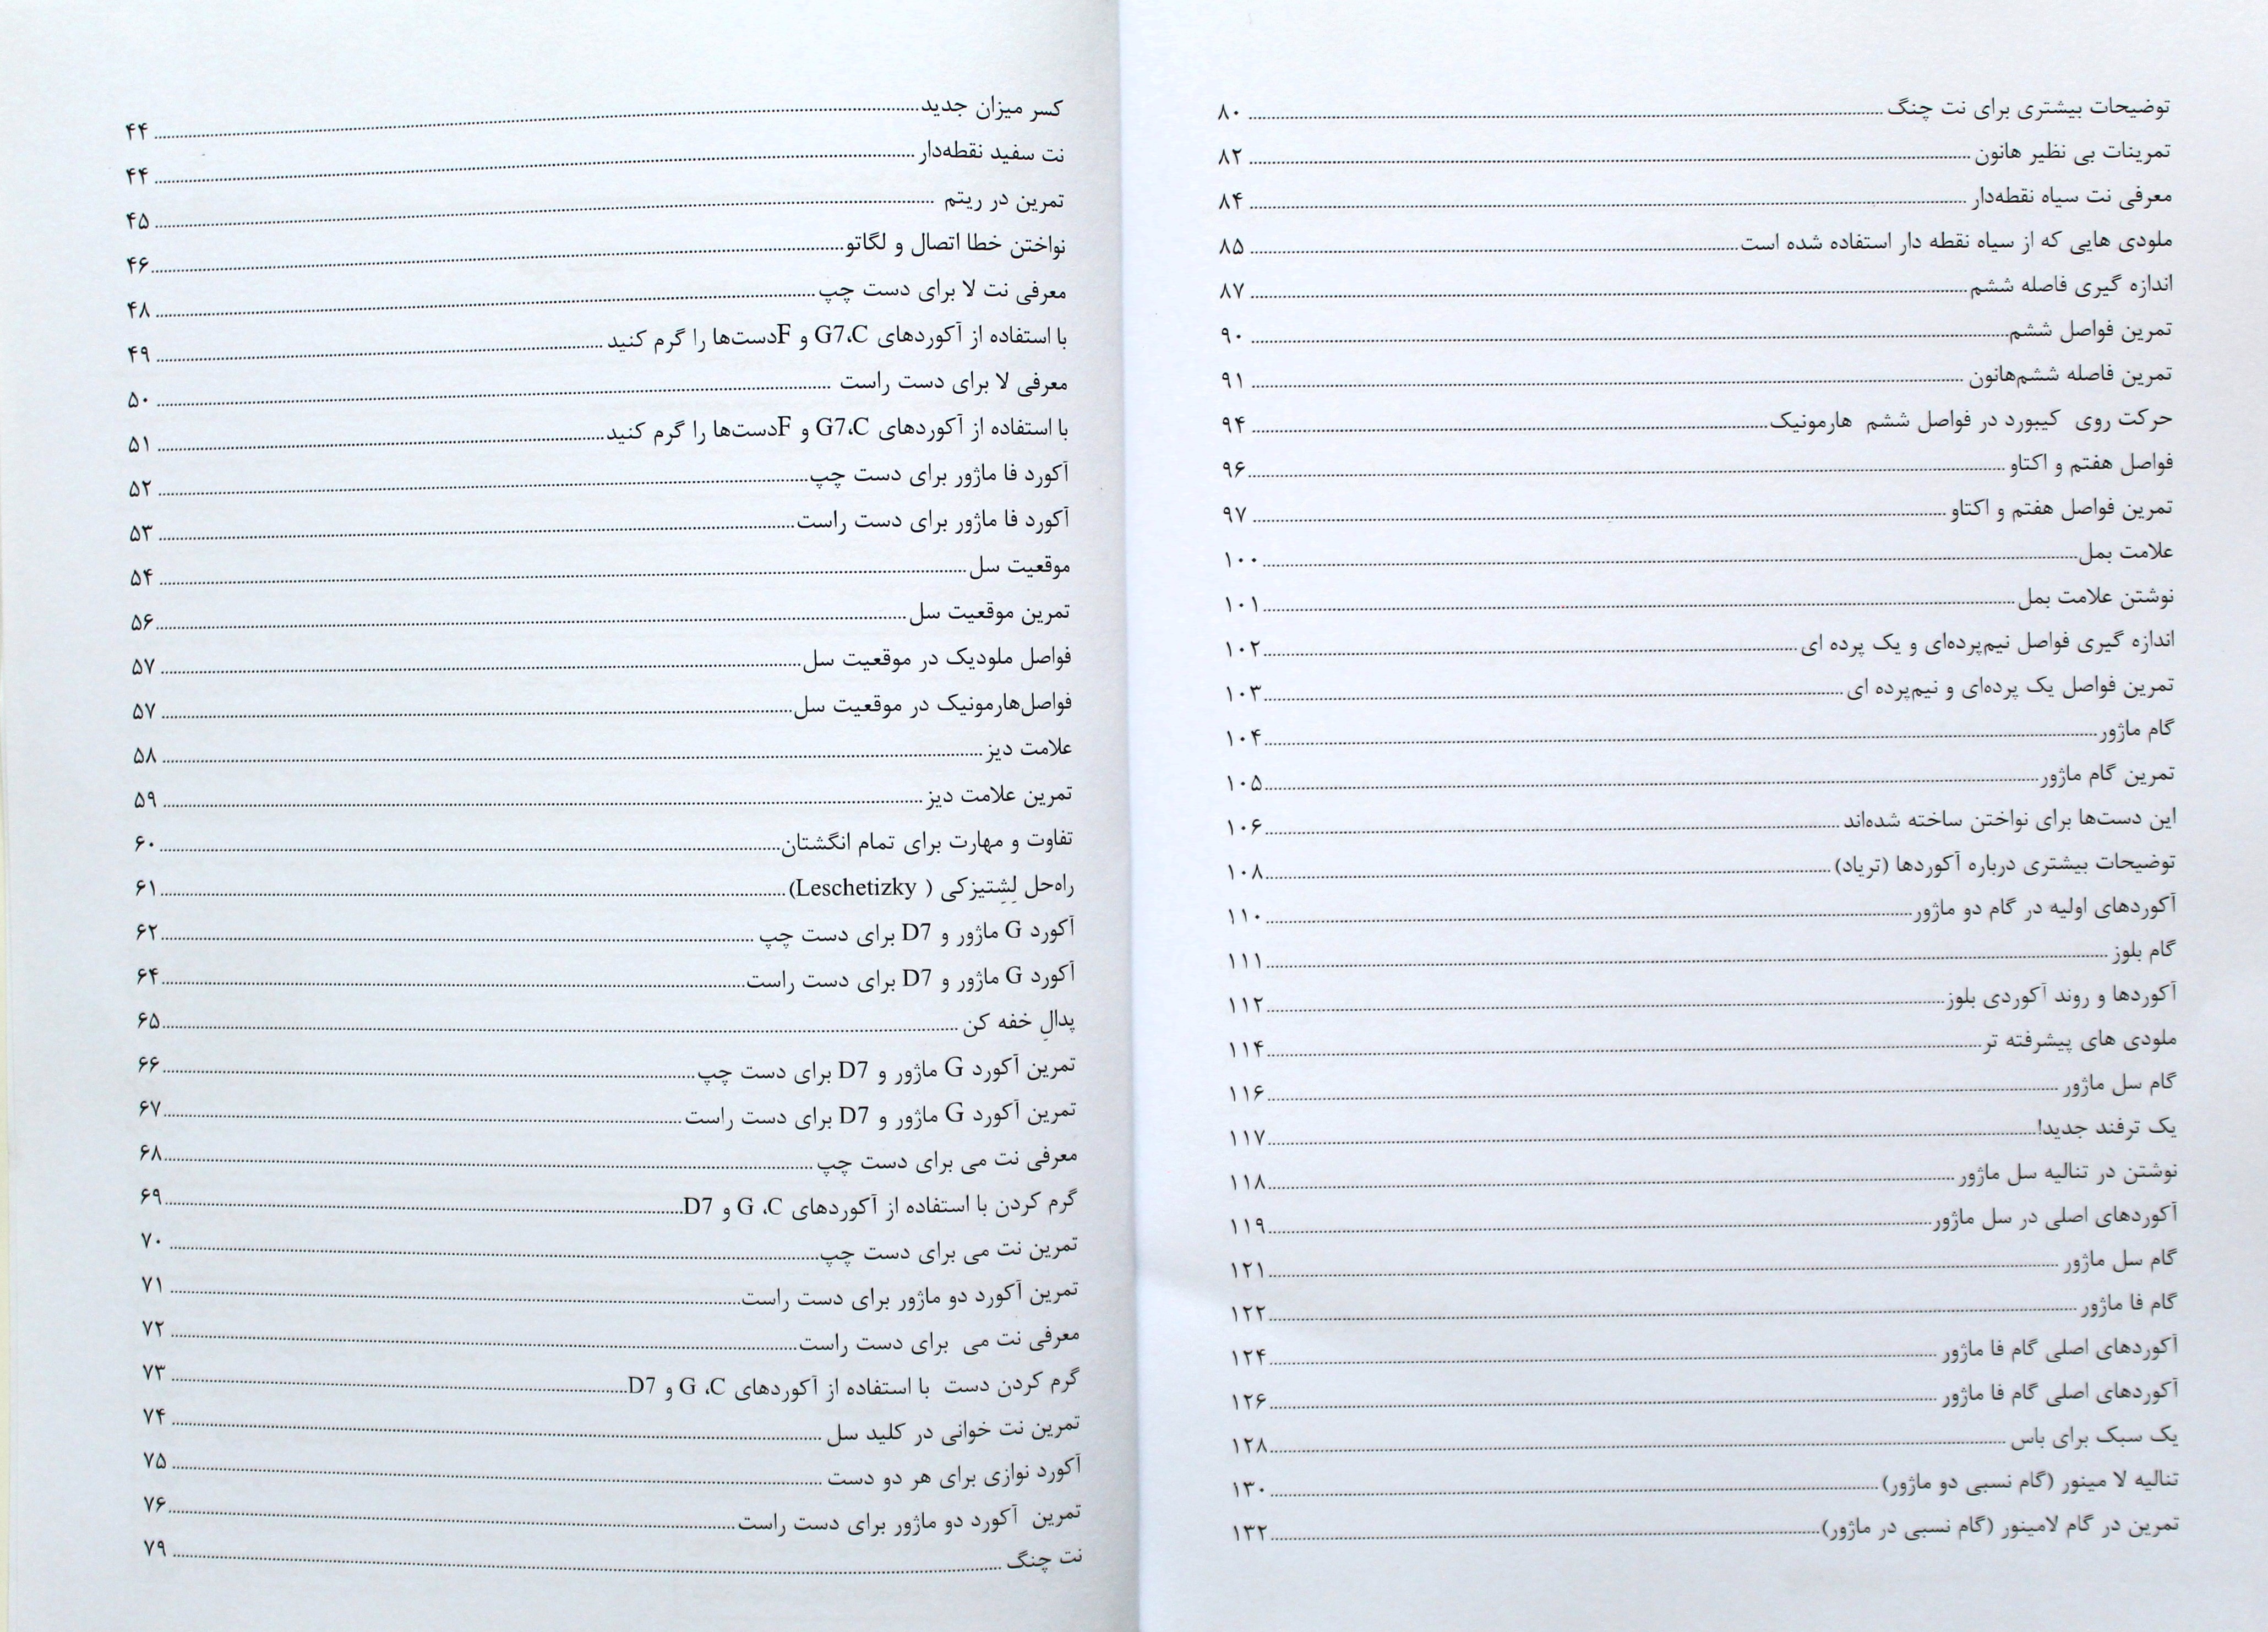 کسر میزان جدید ۴۴
نت سفید نقطه‌دار ۴۴
تمرین در ریتم ۴۵
نواختن خطا اتصال و لگاتو ۴۶
معرفی نت لا برای دست چپ ۴۸
با استفاده از آکوردهای G7،C و Fدست‌ها را گرم کنید ۴۹
معرفی لا برای دست راست ۵۰
با استفاده از آکوردهای G7،C و Fدست‌ها را گرم کنید ۵۱
آکورد فا ماژور برای دست چپ ۵۲
آکورد فا ماژور برای دست راست ۵۳
موقعیت سل ۵۴
تمرین موقعیت سل ۵۶
فواصل ملودیک در موقعیت سل ۵۷
فواصل‌هارمونیک در موقعیت سل ۵۷
علامت دیز ۵۸
تمرین علامت دیز ۵۹
تفاوت و مهارت برای تمام انگشتان ۶۰
راه‌حل لِشِتیزکی ( Leschetizky) ۶۱
آکورد G ماژور و D7 برای دست چپ ۶۲
آکورد G ماژور و D7 برای دست راست ۶۴
پدالِ خفه کن ۶۵
تمرین آکورد G ماژور و D7 برای دست چپ ۶۶
تمرین آکورد G ماژور و D7 برای دست راست ۶۷
معرفی نت می برای دست چپ ۶۸
گرم کردن با استفاده از آکوردهای G ،C و D7 ۶۹
تمرین نت می برای دست چپ ۷۰
تمرین آکورد دو ماژور برای دست راست ۷۱
معرفی نت می برای دست راست ۷۲
گرم کردن دست با استفاده از آکوردهای G ،C و D7 ۷۳
تمرین نت خوانی در کلید سل ۷۴
آکورد نوازی برای هر دو دست ۷۵
تمرین آکورد دو ماژور برای دست راست ۷۶
نت چنگ ۷۹
توضیحات بیشتری برای نت چنگ ۸۰
تمرینات بی نظیر هانون ۸۲
معرفی نت سیاه نقطه‌دار ۸۴
ملودی هایی که از سیاه نقطه دار استفاده شده است ۸۵
اندازه گیری فاصله ششم ۸۷
تمرین فواصل ششم ۹۰
تمرین فاصله ششم‌هانون ۹۱
حرکت روی کیبورد در فواصل ششم هارمونیک ۹۴
فواصل هفتم و اکتاو ۹۶
تمرین فواصل هفتم و اکتاو ۹۷
علامت بمل ۱۰۰
نوشتن علامت بمل ۱۰۱
اندازه گیری فواصل نیم‌پرده‌ای و یک پرده ای ۱۰۲
تمرین فواصل یک پرده‌ای و نیم‌پرده ای ۱۰۳
گام ماژور ۱۰۴
تمرین گام ماژور ۱۰۵
این دست‌ها برای نواختن ساخته شده‌اند ۱۰۶
توضیحات بیشتری درباره آکوردها (تریاد) ۱۰۸
آکوردهای اولیه در گام دو ماژور ۱۱۰
گام بلوز ۱۱۱
آکوردها و روند آکوردی بلوز ۱۱۲
ملودی های پیشرفته تر ۱۱۴
گام سل ماژور ۱۱۶
یک ترفند جدید! ۱۱۷
نوشتن در تنالیه سل ماژور ۱۱۸
آکوردهای اصلی در سل ماژور ۱۱۹
گام سل ماژور ۱۲۱
گام فا ماژور ۱۲۲
آکوردهای اصلی گام فا ماژور ۱۲۴
آکوردهای اصلی گام فا ماژور ۱۲۶
یک سبک برای باس ۱۲۸
تنالیه لا مینور (گام نسبی دو ماژور) ۱۳۰
تمرین در گام لامینور (گام نسبی در ماژور) ۱۳۲